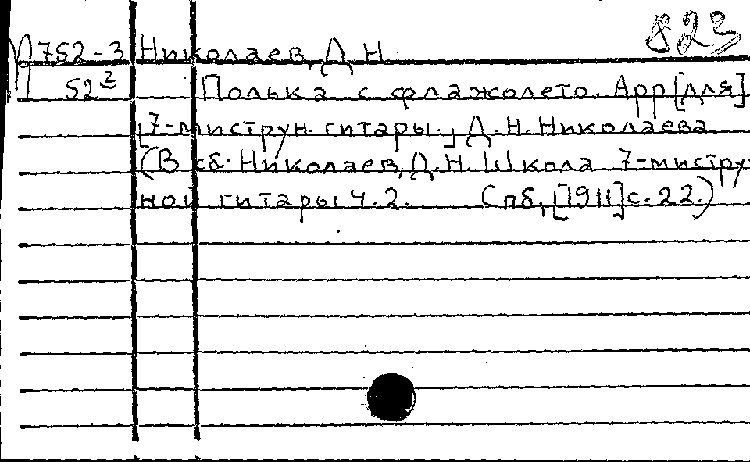 823
П 752-3 Николаев, Д. Н.
52² Полька с флажолето. Арр[для]
[7-миструн. гитары.] Д. Н. Николаева
(В сб: Николаев, Д. Н. Школа 7-мистру-
ной гитары ч. 2. Спб, [1911] с. 22.)